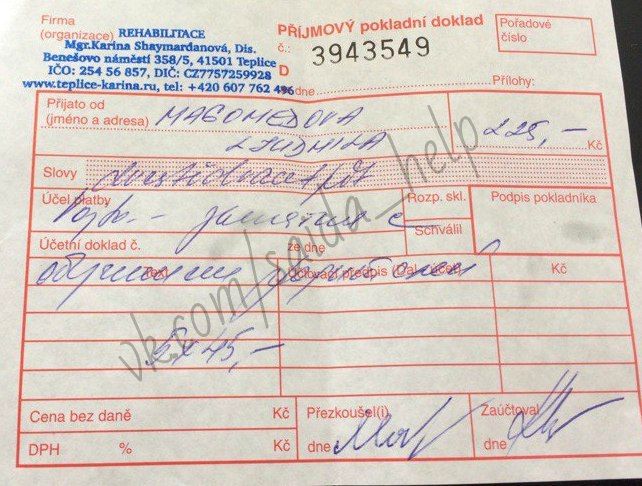 Firma
(organizace) REHABILITACE
Mgr.Karina Shaymardanová, Dis.
Benešovo náměstí 358/5, 41501 Teplice
IČO: 254 56 857, DIČ: CZ7757259928
www.teplice-karina.ru, tel: +420 607 762 496
PŘÍJMOVÝ pokladní doklad
č.: 3943549
D
dne
Pořadové
číslo
Přílohy:
Přijato od
(jméno a adresa) MAGOMEDOVA
LJUDMILA
225,- Kč
Slovy dvěstědvacetpět
Účel platby
Rozp. skl.
Schválil
Podpis pokladníka
Účetní doklad č.
ze dne
Text
Účtovací předpis (Dal - účet)
Kč
5x45,-
Cena bez daně Kč
DPH % Kč
Přezkoušel(i)
dne
Zaúčtoval
dne
vk.com/saida_help